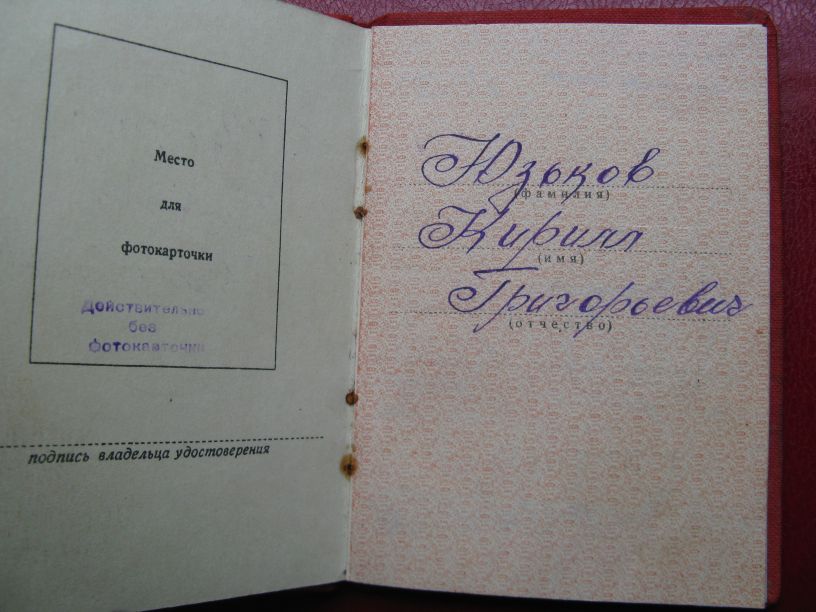 Место
для
фотокарточки
Действительно
без
фотокарточки
подпись владельца удостоверения
Юзьков
(фамилия)
Кирилл
(имя)
Григорьевич
(отчество)